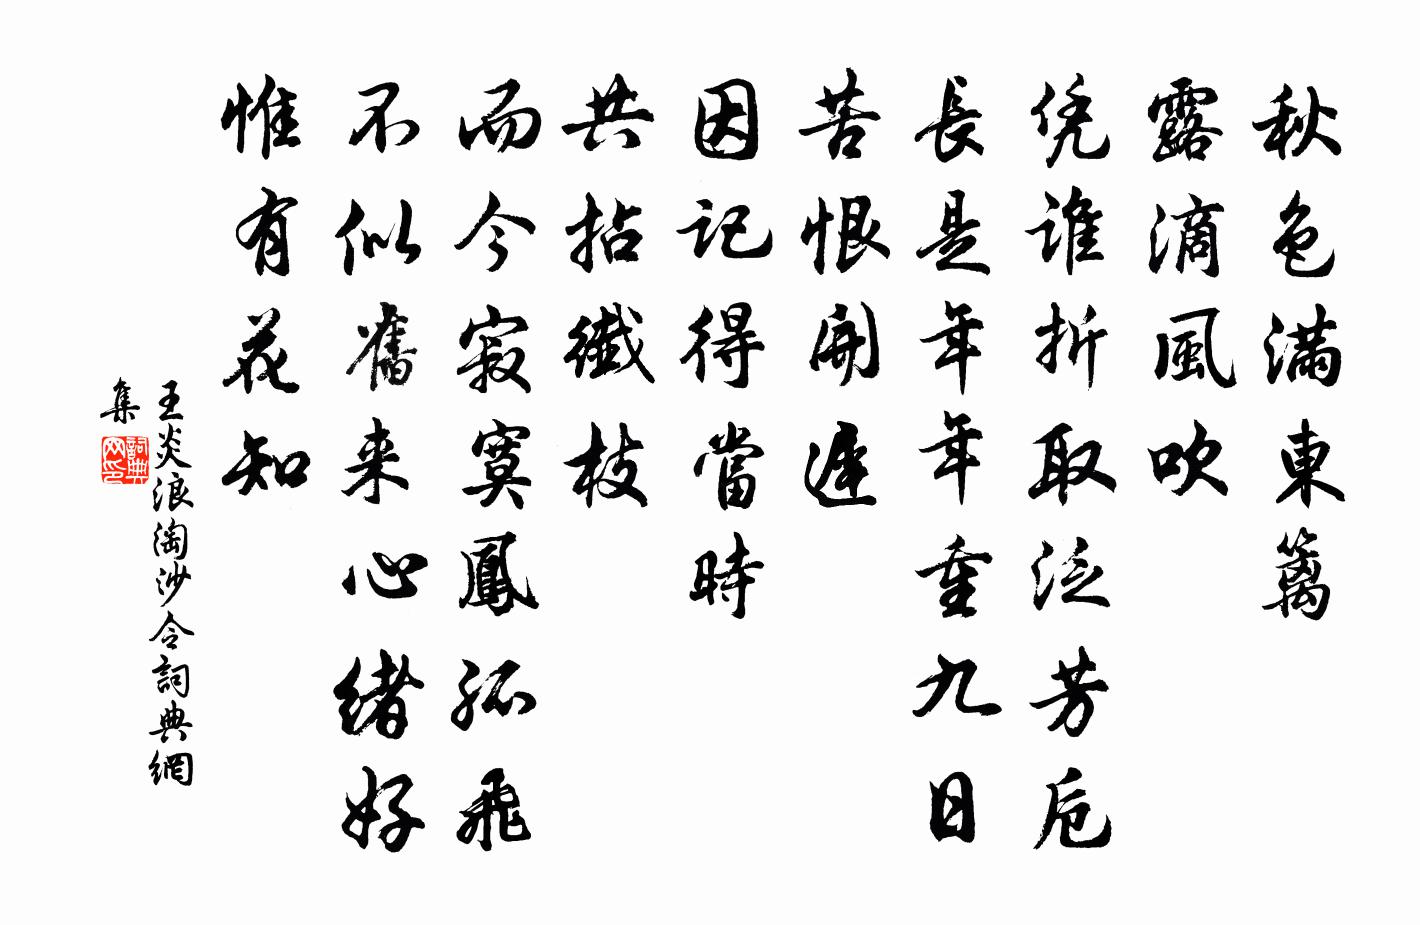 秋色滿東籬
露滴風吹
凭誰折取泛芳卮
長是年年重九日
苦恨開遲
因記得當時
共拈纖枝
而今寂寞鳳孤飛
不似舊来心緒好
惟有花知
王炎浪淘沙令詞典網
集
詞典
网印